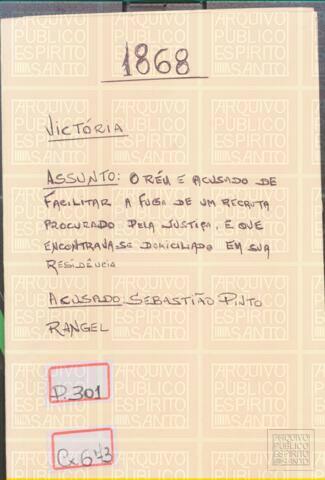 1868
VICTÓRIA
ASSUNTO: O RÉU E ACUSADO DE
FACILITAR A FUGA DE UM RECRUTA
PROCURADO PELA JUSTIÇA, E QUE
ENCONTRAVA-SE DOMICILIADO EM SUA
RESIDÊNCIA
ACUSADO: SEBASTIÃO PINTO
RANGEL
P.301
Cx 643
ARQUIVO
PÚBLICO
ESPÍRITO
SANTO